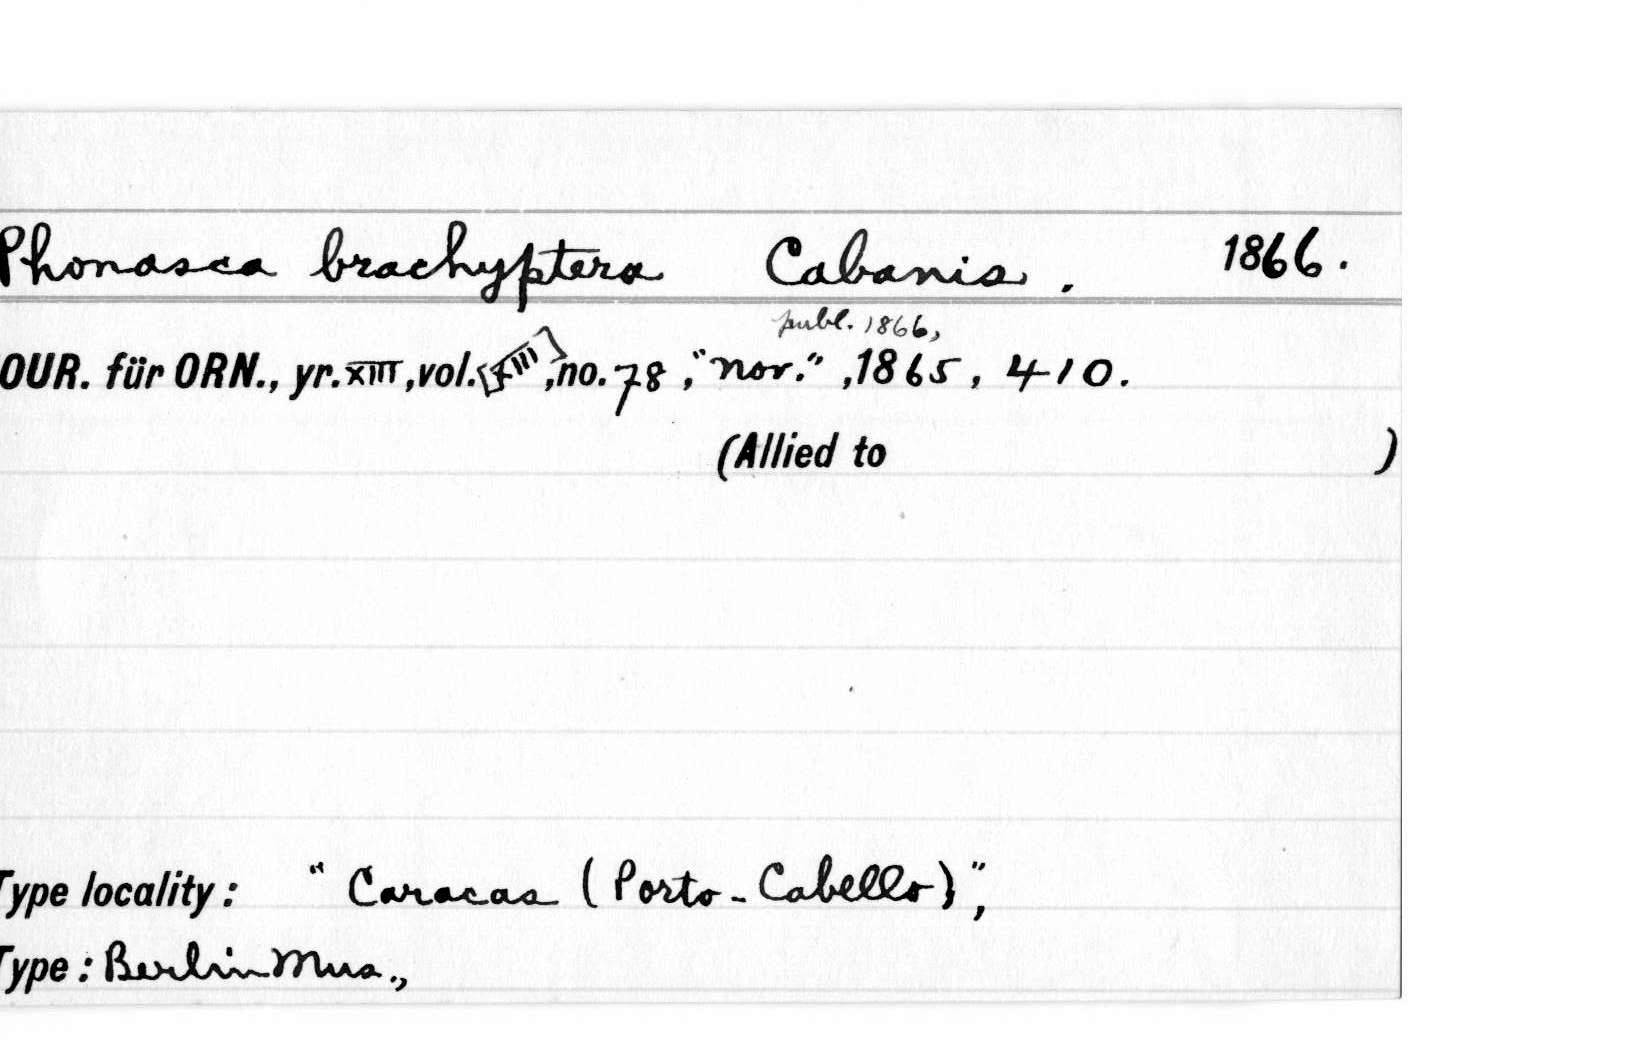 Phonasca brachyptera Cabanis. 1866.
publ. 1866,
OUR. für ORN., yr. XIII, vol. [XIII], no. 78, "nov.", 1865, 410.
(Allied to )
Type locality: "Caracas (Porto-Cabello)",
Type: Berlin Mus.,